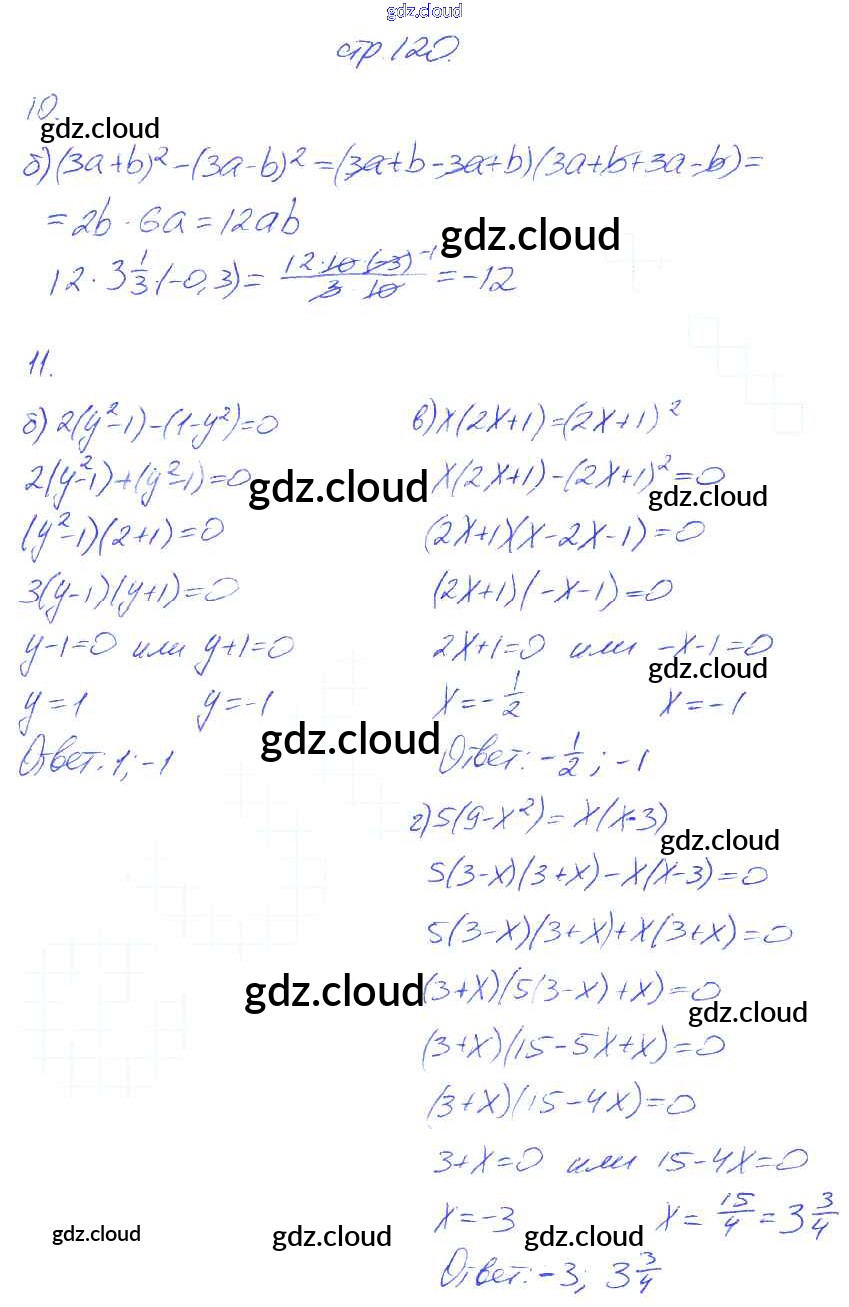 gdz.cloud
стр. 120.
10.
gdz.cloud
б) (3a+b)² - (3a-b)² = (3a+b-3a+b)(3a+b+3a-b) =
= 2b · 6a = 12ab
gdz.cloud
12 · 3 1/3 · (-0,3) = 12·10·(-3) -1 / 3·10 = -12
11.
б) 2(y²-1)-(1-y²)=0
2(y²-1)+(y²-1)=0
gdz.cloud
(y²-1)(2+1)=0
3(y-1)(y+1)=0
y-1=0 или y+1=0
y=1 y=-1
gdz.cloud
Ответ: 1; -1
в) x(2x+1)=(2x+1)²
x(2x+1)-(2x+1)²=0
gdz.cloud
(2x+1)(x-2x-1)=0
(2x+1)(-x-1)=0
2x+1=0 или -x-1=0
gdz.cloud
x=-1/2 x=-1
Ответ: -1/2; -1
г) 5(9-x²)= x(x-3)
gdz.cloud
5(3-x)(3+x)-x(x-3)=0
5(3-x)(3+x)+x(3+x)=0
gdz.cloud
(3+x)(5(3-x)+x)=0
gdz.cloud
(3+x)(15-5x+x)=0
(3+x)(15-4x)=0
3+x=0 или 15-4x=0
x=-3 x=15/4=3 3/4
gdz.cloud gdz.cloud gdz.cloud
Ответ: -3; 3 3/4